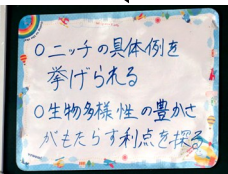 ○ニッチの具体例を
挙げられる
○生物多様性の豊かさ
がもたらす利点を探る